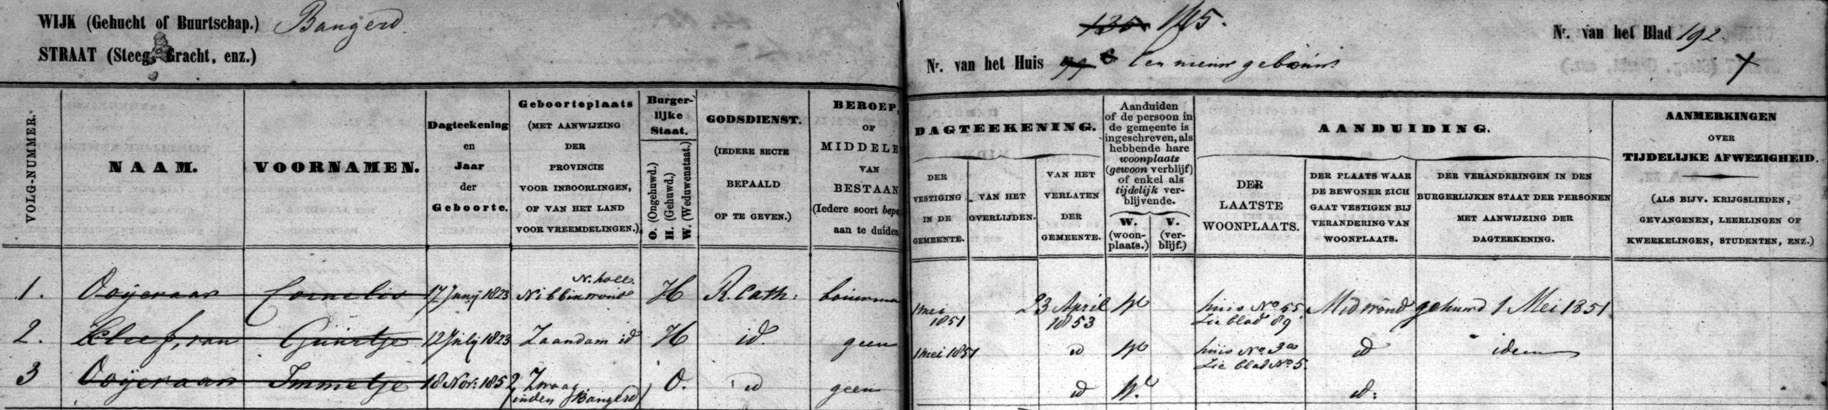 WIJK (Gehucht of Buurtschap.) Bangerd.
STRAAT (Steeg, Gracht, enz.)
VOLG-NUMMER.
NAAM.
VOORNAMEN.
Dagteekening
en
Jaar
der
Geboorte.
Geboorteplaats
(MET AANWIJZING
DER
PROVINCIE
VOOR INBOORLINGEN,
OF VAN HET LAND
VOOR VREEMDELINGEN.)
Burger-
lijke
Staat.
O. (Ongehuwd.)
H. (Gehuwd.)
W. (Weduwenstaat.)
GODSDIENST.
(IEDERE SECTE
BEPAALD
OP TE GEVEN.)
BEROEP,
OF
MIDDELE
VAN
BESTAAN
(Iedere soort bepa
aan te duiden
1. Ooijevaar Cornelis 17 Junij 1823 N. holl. Nibbixwoud H R. Cath: bouwma
2. Kleef, van Guurtje 12 Julij 1823 Zaandam id H id geen
3 Ooijevaar Immetje 18 Nov: 1852 Zwaag (in den Bangerd) O. id geen
135 145.
Nr. van het Huis 99 een nieuw gebouw
Nr. van het Blad 192
DAGTEEKENING.
DER
VESTIGING
IN DE
GEMEENTE.
VAN HET
OVERLIJDEN.
VAN HET
VERLATEN
DER
GEMEENTE.
Aanduiden
of de persoon in
de gemeente is
ingeschreven, als
hebbende hare
woonplaats
(gewoon verblijf)
of enkel als
tijdelijk ver-
blijvende.
W.
(woon-
plaats.)
V.
(ver-
blijf.)
AANDUIDING.
DER
LAATSTE
WOONPLAATS.
DER PLAATS WAAR
DE BEWONER ZICH
GAAT VESTIGEN BIJ
VERANDERING VAN
WOONPLAATS.
DER VERANDERINGEN IN DEN
BURGERLIJKEN STAAT DER PERSONEN
MET AANWIJZING DER
DAGTEEKENING.
AANMERKINGEN
OVER
TIJDELIJKE AFWEZIGHEID.
(ALS BIJV. KRIJGSLIEDEN,
GEVANGENEN, LEERLINGEN OF
KWEEKELINGEN, STUDENTEN, ENZ.)
1 mei 1851 23 April 1853 W huis No 55 Zie blad 89 Midwoud gehuwd 1 Mei 1851
1 mei 1851 id W huis No Zie blad No 5. id idem
id W. id: